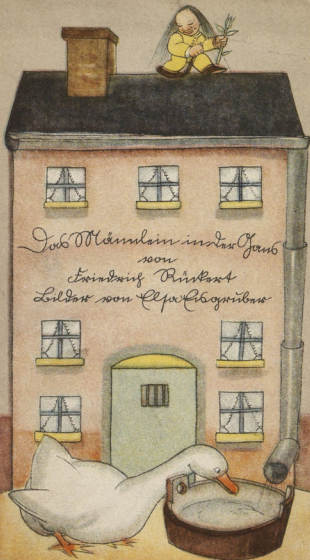 Das Männlein in der Gans
von
Friedrich Rückert
Bilder von Elsa Eisgruber